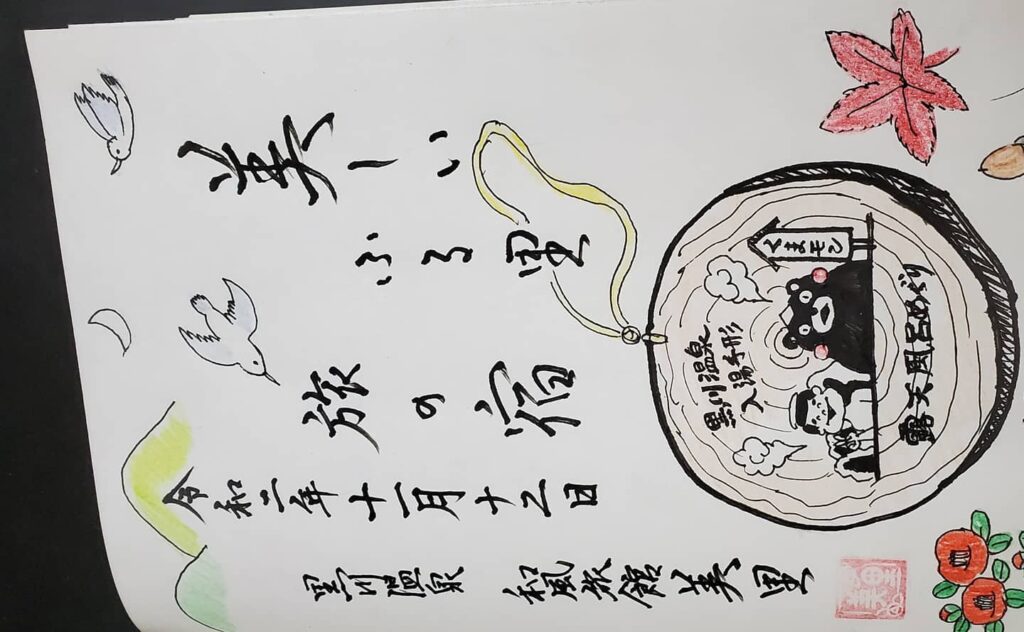 美しい
ふる里
旅の宿
令和二年十一月十二日
黒川温泉 和風旅館 美里
くまモン
黒川温泉
入湯手形
露天風呂めぐり